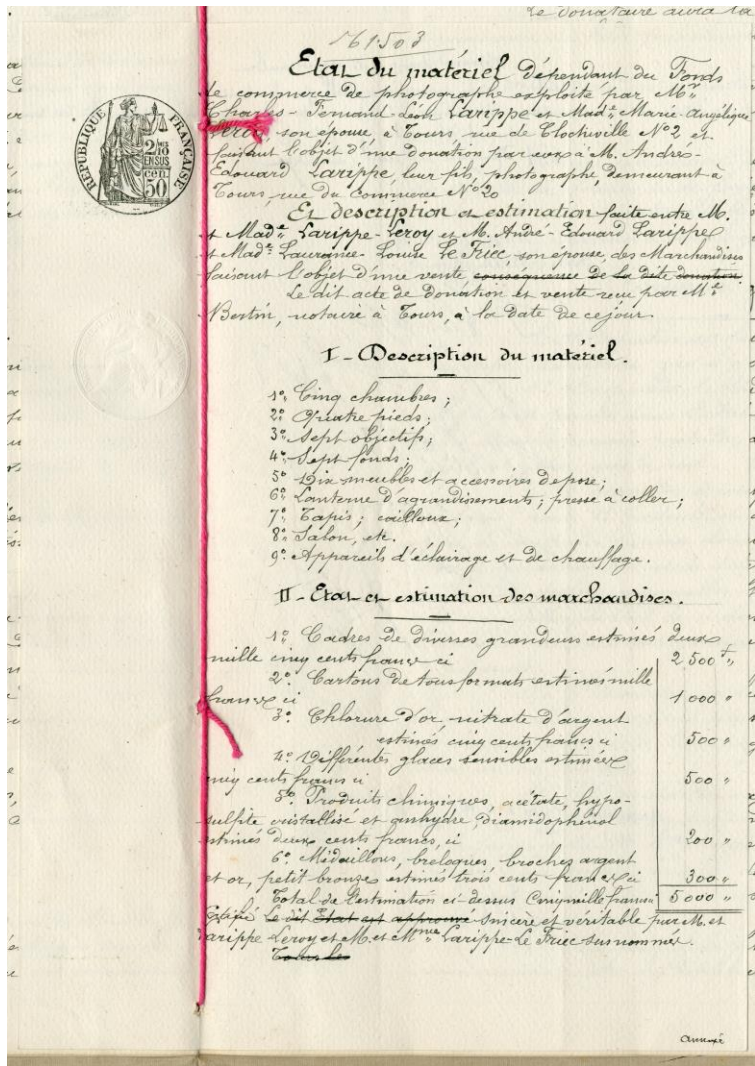 Le donataire aura la
161503
Etat du matériel dépendant du Fonds
de commerce de photographe exploité par Mr
Charles-Fernand-Léon Larippe et Made Marie-Angélique
Leroy son épouse à Tours rue de Clocheville No 2 et
faisant l'objet d'une donation par eux à M. André-
Edouard Larippe, leur fils, photographe, demeurant à
Tours, rue du Commerce No 20
Et description et estimation faite entre M.
et Made Larippe-Leroy et M. André-Edouard Larippe
et Made Laurance-Louise Le Friec, son épouse, des Marchandises
faisant l'objet d'une vente conséquence de la dite donation
Le dit acte de donation et vente reçu par Me
Bertin, notaire à Tours, à la date de ce jour.
RÉPUBLIQUE FRANÇAISE
2/10mes
EN SUS
50
cen.
I - Description du matériel.
1o Cinq chambres;
2o Quatre pieds;
3o Sept objectifs;
4o Sept fonds;
5o Dix meubles et accessoires de pose;
6o Lanterne d'agrandissements; presse à coller;
7o Tapis; cailloux;
8o Salon, etc.
9o Appareils d'éclairage et de chauffage.
II - Etat et estimation des marchandises.
1o Cadres de diverses grandeurs estimés deux
mille cinq cents francs ci 2 500 f "
2o Cartons de tous formats estimés mille
francs ci 1 000 "
3o Chlorure d'or, nitrate d'argent
estimés cinq cents francs ci 500 "
4o Différentes glaces sensibles estimées
cinq cents francs ci 500 "
5o Produits chimiques, acétate, hypo-
sulfite cristallisé et anhydre, diamidophénol
estimés deux cents francs, ci 200 "
6o Médaillons, breloques, broches argent
et or, petit bronze estimés trois cents francs ci 300 "
Total de l'estimation ci-dessus Cinq mille francs 5 000 "
Certifié Le dit Etat est approuvé sincère et véritable par M. et
Larippe-Leroy et M. et Mme Larippe-Le Friec susnommés.
Tours le
Annexé